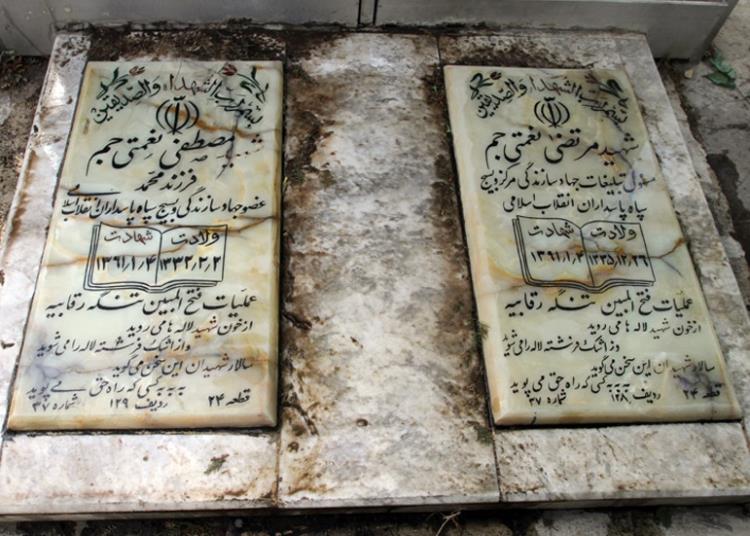 بسم رب الشهداء والصدیقین
شهید مرتضی نعمتی جم
مسئول تبلیغات جهاد سازندگی مرکز و بسیج
سپاه پاسداران انقلاب اسلامی
ولادت شهادت
۱۳۳۵٫۱۲٫۲۶ ۱۳۶۱٫۱٫۴
عملیات فتح المبین تنگه رقابیه
از خون شهید لاله ها می روید
وز اشک فرشته لاله را می شوید
سالار شهیدان این سخن می گوید
به به به کسی که راه حق می پوید
قطعه ۲۴ ردیف ۱۲۸ شماره ۳۷
بسم رب الشهداء والصدیقین
شهید مصطفی نعمتی جم
فرزند محمد
عضو جهاد سازندگی و بسیج سپاه پاسداران انقلاب اسلامی
ولادت شهادت
۱۳۳۲٫۲٫۲ ۱۳۶۱٫۱٫۴
عملیات فتح المبین تنگه رقابیه
از خون شهید لاله ها می روید
وز اشک فرشته لاله را می شوید
سالار شهیدان این سخن می گوید
به به به کسی که راه حق می پوید
قطعه ۲۴ ردیف ۱۲۹ شماره ۳۷